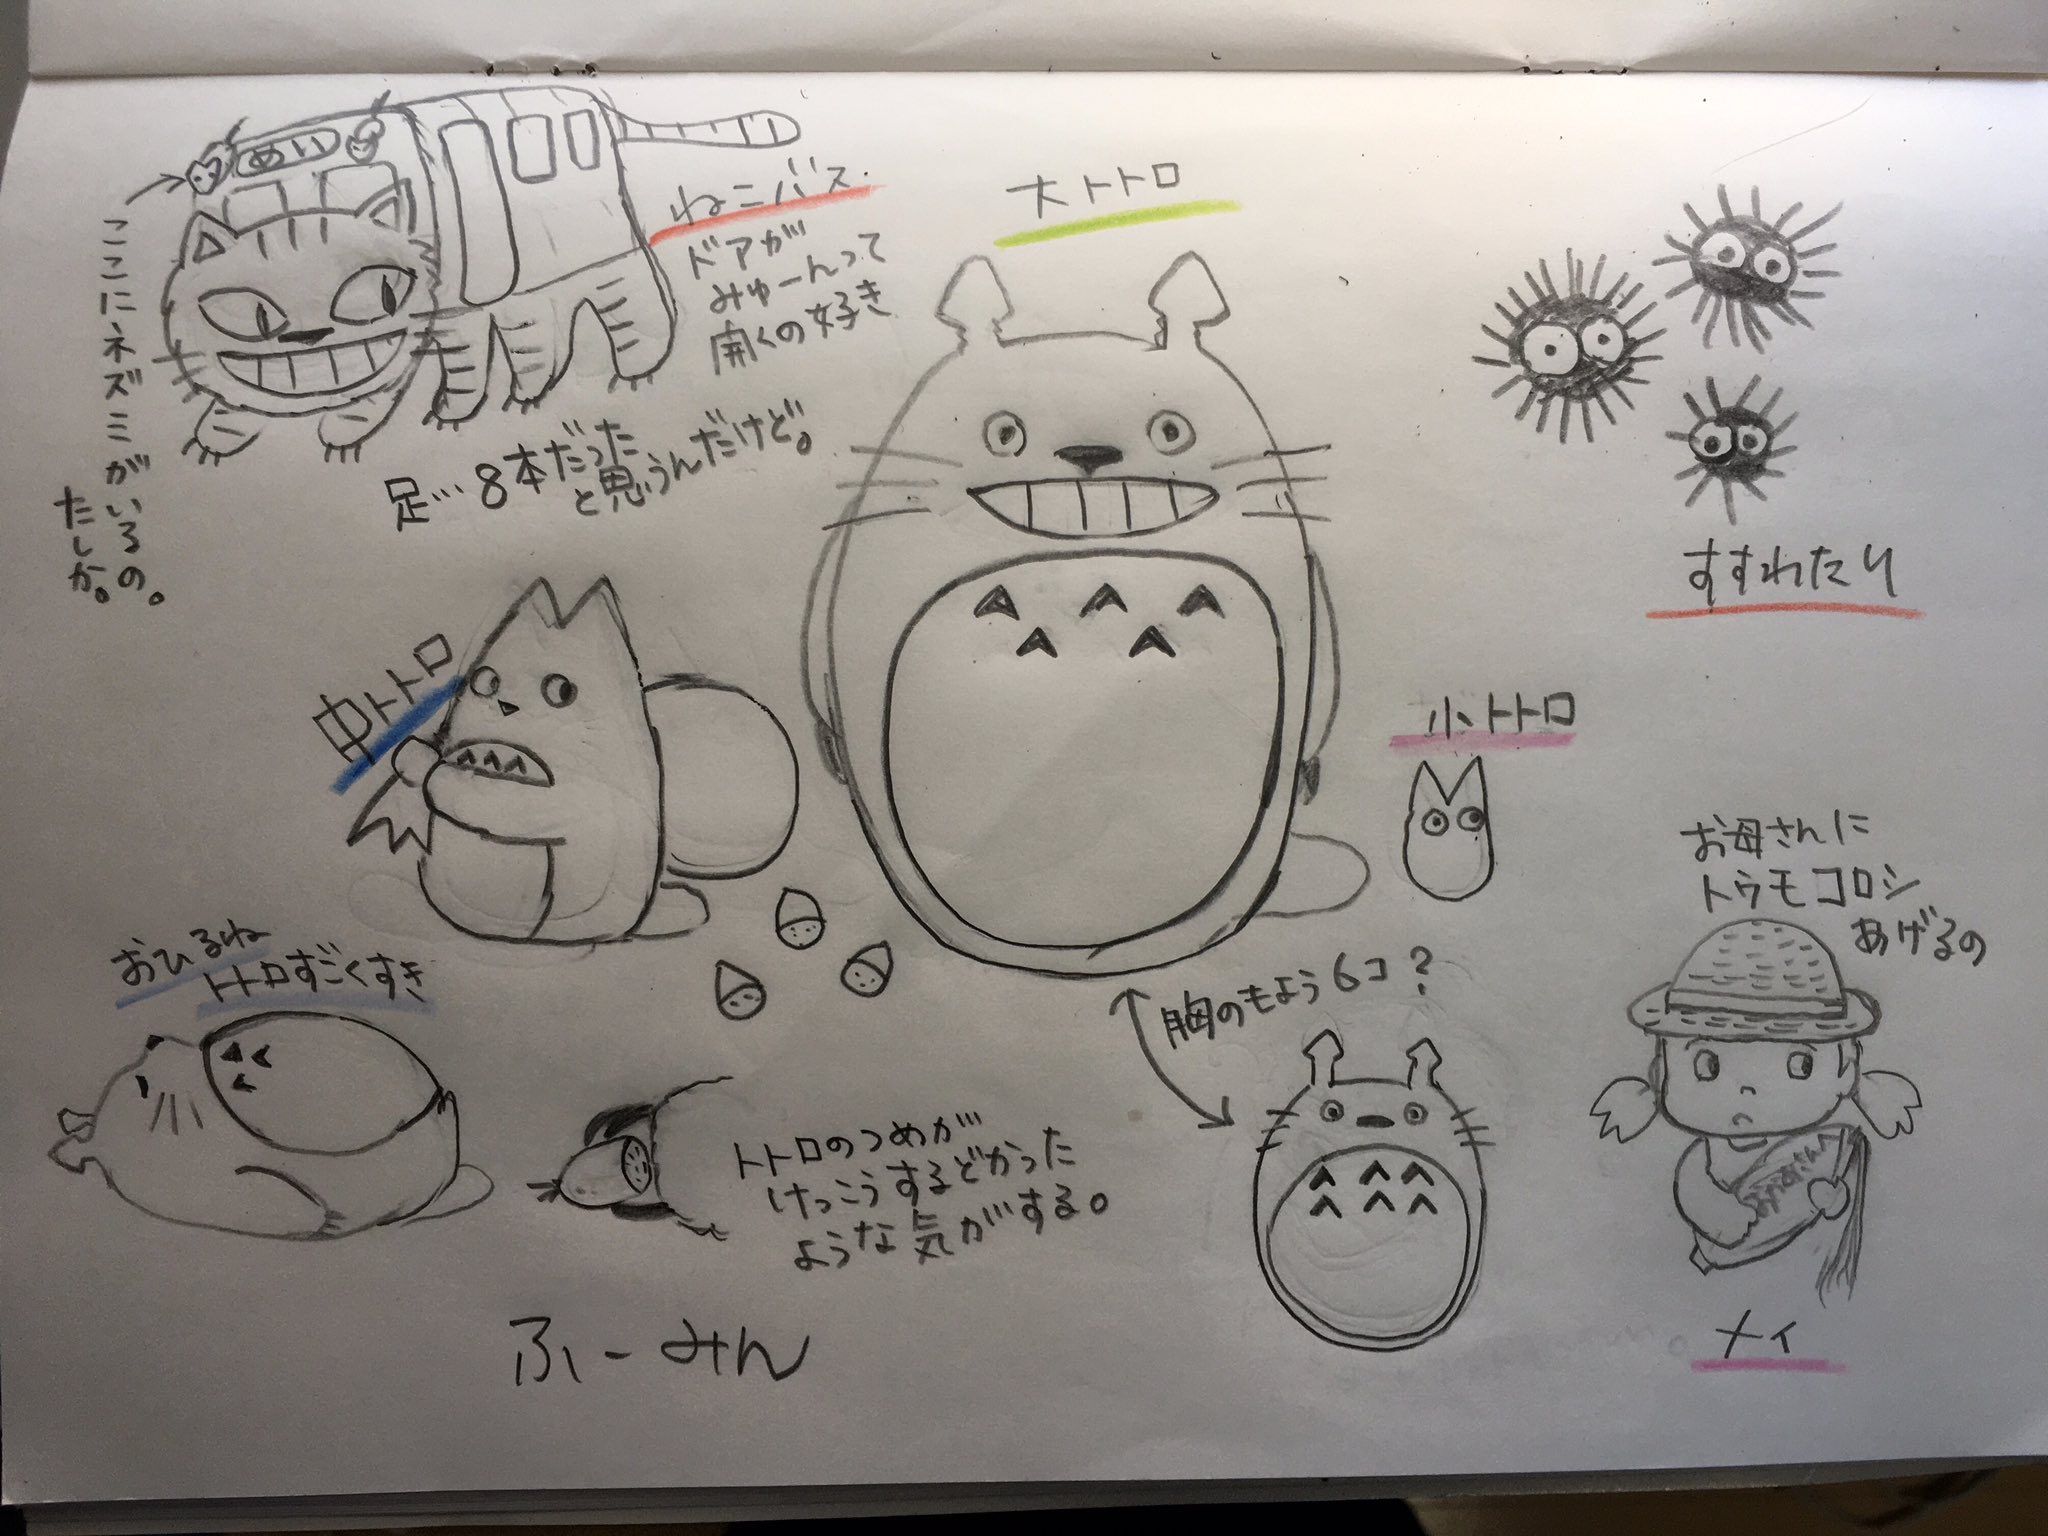 めい
ここにネズミがいるの。
たしか。
ねこバス.
ドアが
みゅーんって
開くの好き
足…8本だった
と思うんだけど。
大トトロ
すすわたり
中トトロ
小トトロ
お母さんに
トウモコロシ
あげるの
おひるね
トトロすごくすき
胸のもよう6コ?
トトロのつめが
けっこうするどかった
ような気がする。
おかあさんへ
メイ
ふーみん